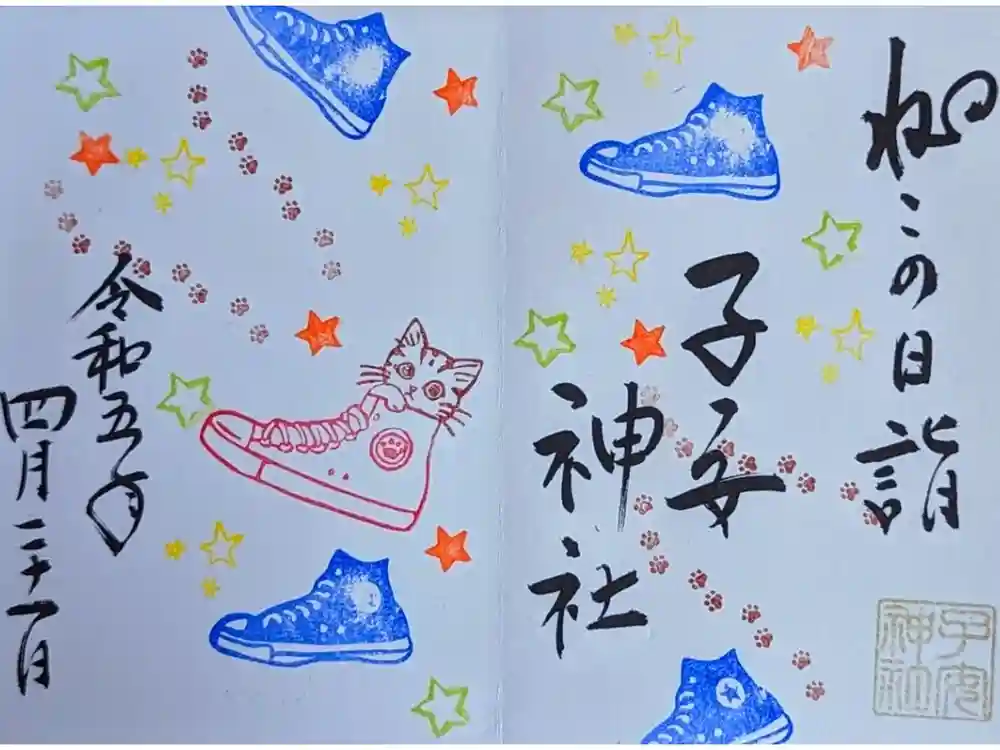 ねこの日詣
子安
神社
子安
神社
令和五年
四月二十一日